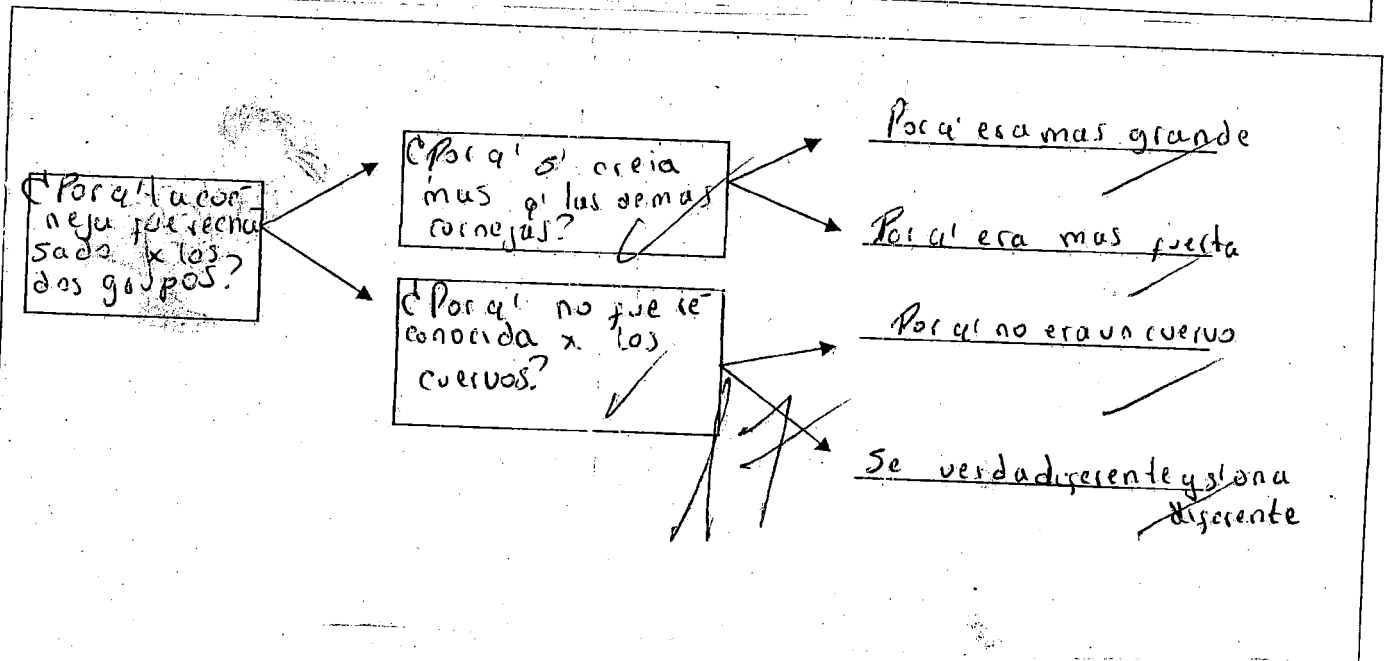 ¿Por q' la cor-
neja fue recha
sada x los
dos grupos?
¿Por q' s' creia
mas q' las demas
cornejas?
¿Por q' no fue re-
conocida x los
cuervos?
Por q' era mas grande
Por q' era mas fuerte
Por q' no era un cuervo
Se diferente y
diferente